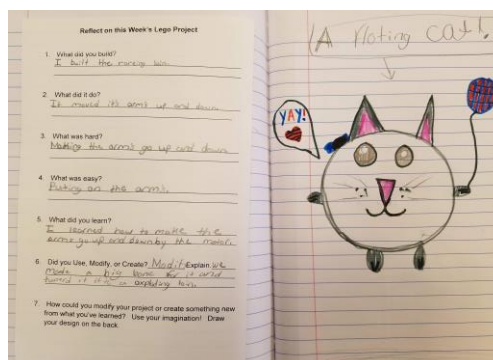 Reflect on this Week's Lego Project
1. What did you build?
I built the
2. What did it do?
It moved it's arms up and down.
3. What was hard?
Making the arms go up and down
4. What was easy?
Puting on the arms.
5. What did you learn?
I learned how to make the
arms go up and down by the motor.
6. Did you Use, Modify, or Create? Modify Explain. We
made a big for it and
turned it
7. How could you modify your project or create something new
from what you've learned? Use your imagination! Draw
your design on the back.
A floting cat!
YAY!